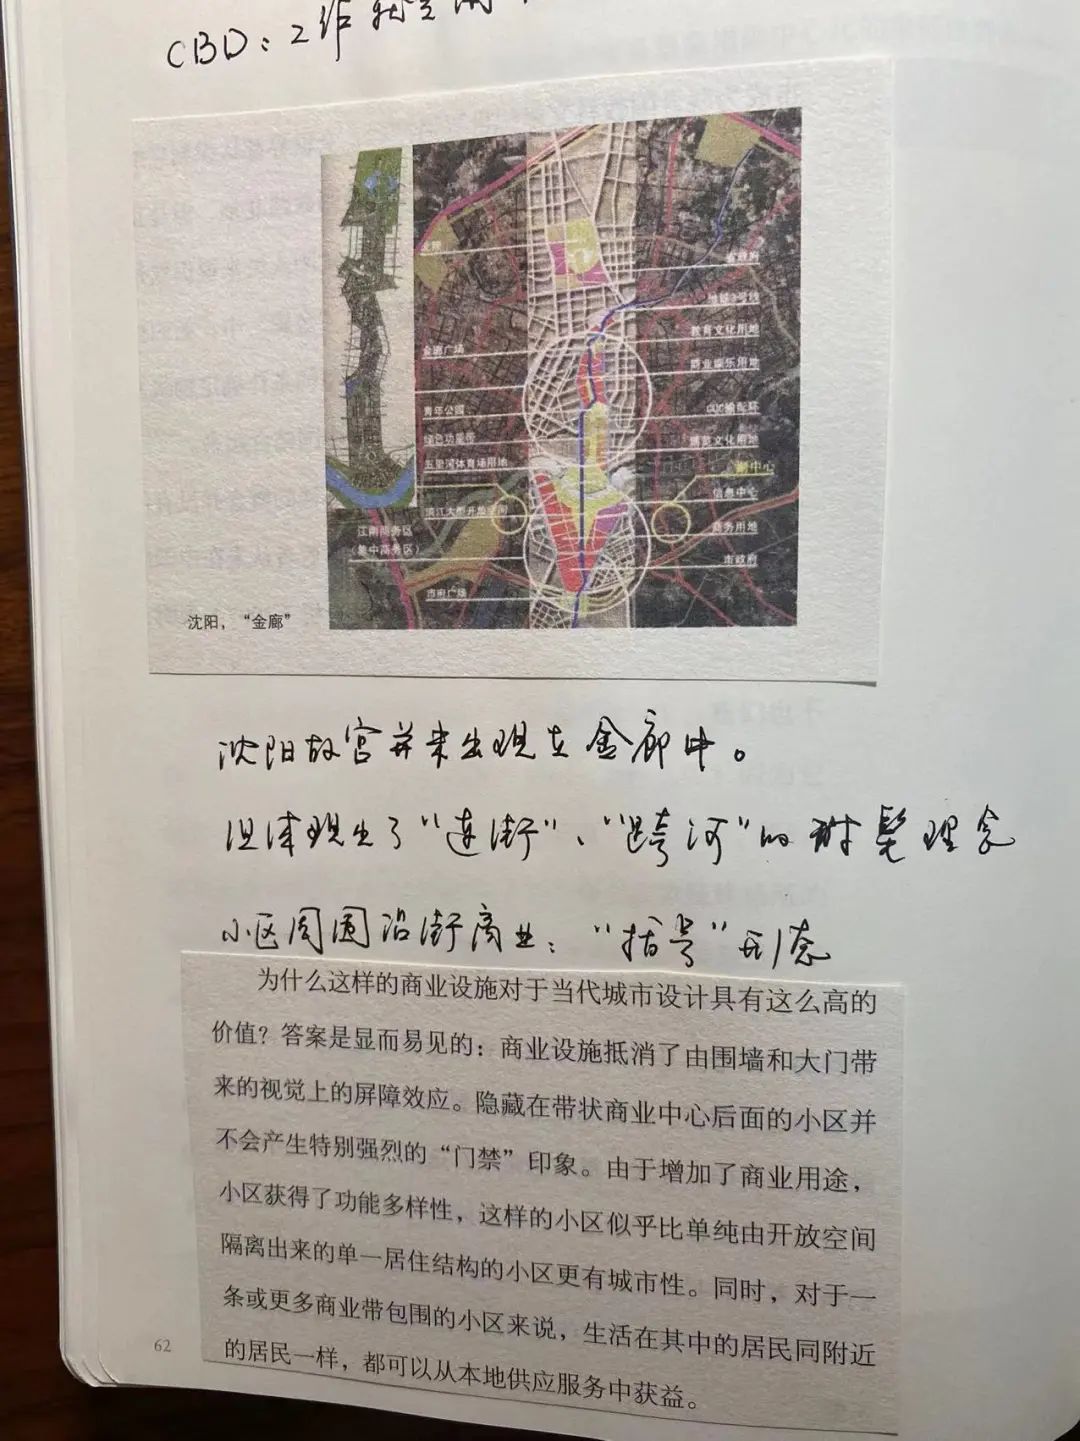 CBD：工作
金廊广场
青年公园
五里河体育场用地
滨江大型开放空间
江南商务区
（集中商务区）
市府广场
省政府
地铁2号线
教育文化用地
商业娱乐用地
博览文化用地
信息中心
商务用地
市政府
沈阳，“金廊”
沈阳故宫并未出现在金廊中。
但体现出了“连街”、“跨河”的时髦理念
小区周围沿街商业：“括号”形态
为什么这样的商业设施对于当代城市设计具有这么高的
价值？答案是显而易见的：商业设施抵消了由围墙和大门带
来的视觉上的屏障效应。隐藏在带状商业中心后面的小区并
不会产生特别强烈的“门禁”印象。由于增加了商业用途，
小区获得了功能多样性，这样的小区似乎比单纯由开放空间
隔离出来的单一居住结构的小区更有城市性。同时，对于一
条或更多商业带包围的小区来说，生活在其中的居民同附近
的居民一样，都可以从本地供应服务中获益。
62